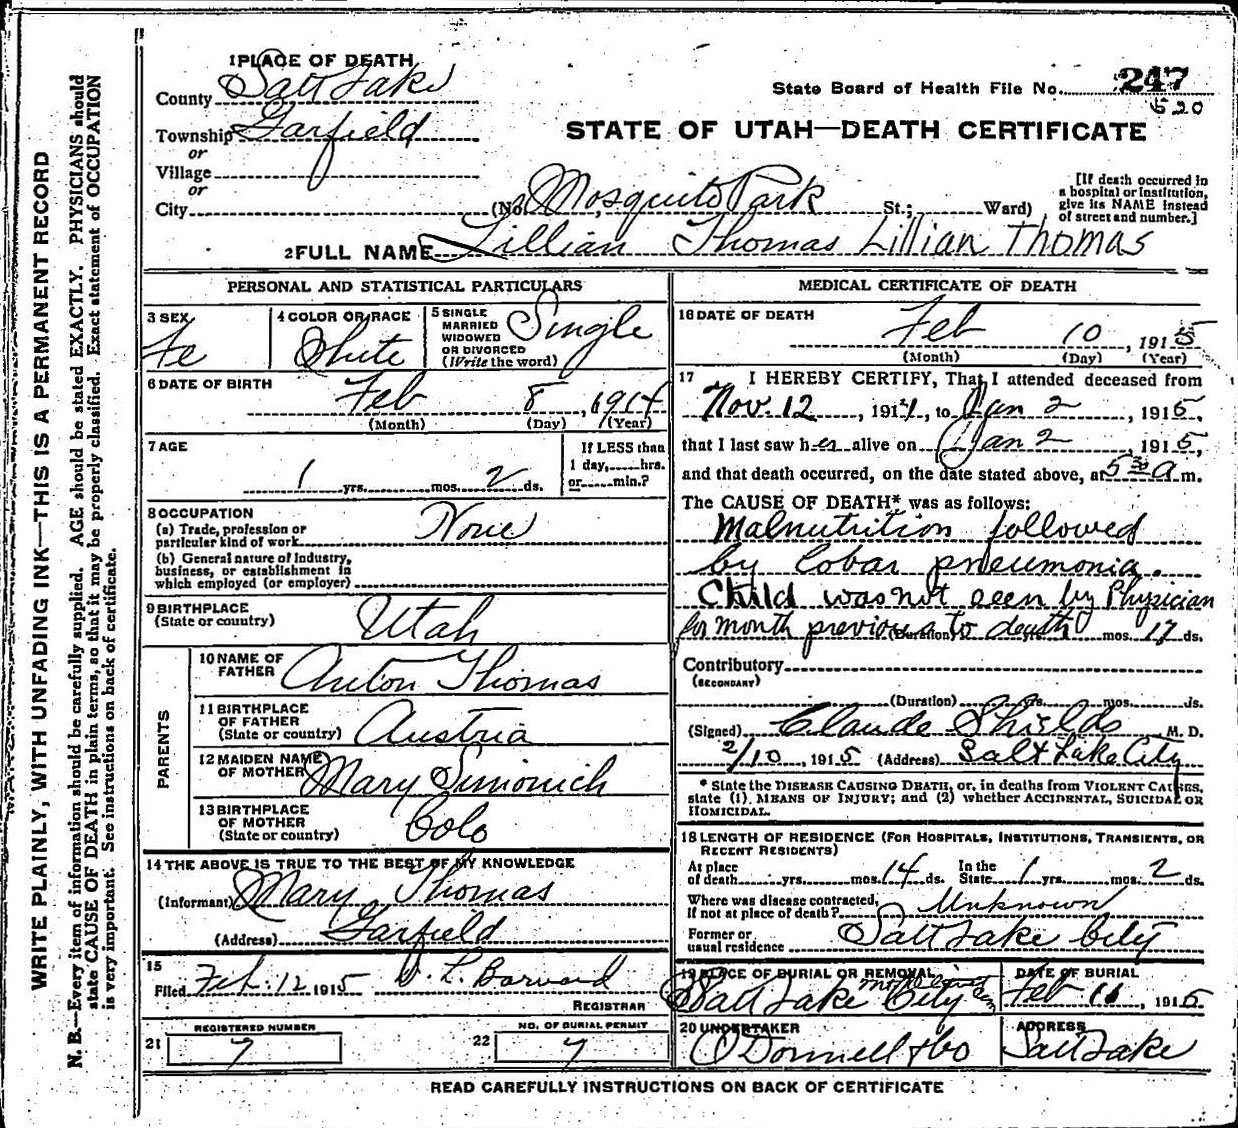 WRITE PLAINLY, WITH UNFADING INK—THIS IS A PERMANENT RECORD
N. B.—Every item of information should be carefully supplied. AGE should be stated EXACTLY. PHYSICIANS should
state CAUSE OF DEATH in plain terms, so that it may be properly classified. Exact statement of OCCUPATION
is very important. See instructions on back of certificate.
1 PLACE OF DEATH
County Salt Lake
Township Garfield
or
Village
or
City
State Board of Health File No. 247
520
STATE OF UTAH—DEATH CERTIFICATE
(No. Mosquito Park St.; Ward)
[If death occurred in
a hospital or institution,
give its NAME instead
of street and number.]
2 FULL NAME Lillian Thomas Lillian Thomas
PERSONAL AND STATISTICAL PARTICULARS
3 SEX
Fe
4 COLOR OR RACE
White
5 SINGLE
MARRIED
WIDOWED
OR DIVORCED
(Write the word)
Single
6 DATE OF BIRTH
Feb 8, 1914
(Month) (Day) (Year)
7 AGE
1 yrs. mos. 2 ds.
If LESS than
1 day, hrs.
or min.?
8 OCCUPATION
(a) Trade, profession or
particular kind of work None
(b) General nature of Industry,
business, or establishment in
which employed (or employer)
9 BIRTHPLACE
(State or country) Utah
PARENTS
10 NAME OF
FATHER Anton Thomas
11 BIRTHPLACE
OF FATHER
(State or country) Austria
12 MAIDEN NAME
OF MOTHER Mary Simonich
13 BIRTHPLACE
OF MOTHER
(State or country) Colo
14 THE ABOVE IS TRUE TO THE BEST OF MY KNOWLEDGE
(Informant) Mary Thomas
(Address) Garfield
15
Filed Feb. 12 1915
REGISTRAR
21 REGISTERED NUMBER
7
22 NO. OF BURIAL PERMIT
7
MEDICAL CERTIFICATE OF DEATH
16 DATE OF DEATH
Feb 10, 1915
(Month) (Day) (Year)
17 I HEREBY CERTIFY, That I attended deceased from
Nov. 12, 1914, to Jan 2, 1915,
that I last saw her alive on Jan 2, 1915,
and that death occurred, on the date stated above, at 5 30 a m.
The CAUSE OF DEATH* was as follows:
Malnutrition followed
by lobar pneumonia.
Child was not seen by Physician
for month previous to death (Duration) mos. 17 ds.
Contributory
(SECONDARY)
(Duration) yrs. mos. ds.
(Signed) Claude Shields M. D.
2/10, 1915 (Address) Salt Lake City
* State the DISEASE CAUSING DEATH, or, in deaths from VIOLENT CAUSES,
state (1) MEANS OF INJURY; and (2) whether ACCIDENTAL, SUICIDAL OR
HOMICIDAL.
18 LENGTH OF RESIDENCE (FOR HOSPITALS, INSTITUTIONS, TRANSIENTS, OR
RECENT RESIDENTS)
At place
of death yrs. mos. 14 ds. In the
State 1 yrs. mos. 2 ds.
Where was disease contracted,
If not at place of death? Unknown
Former or
usual residence Salt Lake City
19 PLACE OF BURIAL OR REMOVAL
Salt Lake City
DATE OF BURIAL
Feb 11, 1915
20 UNDERTAKER
O'Donnell & Co
ADDRESS
Salt Lake
READ CAREFULLY INSTRUCTIONS ON BACK OF CERTIFICATE